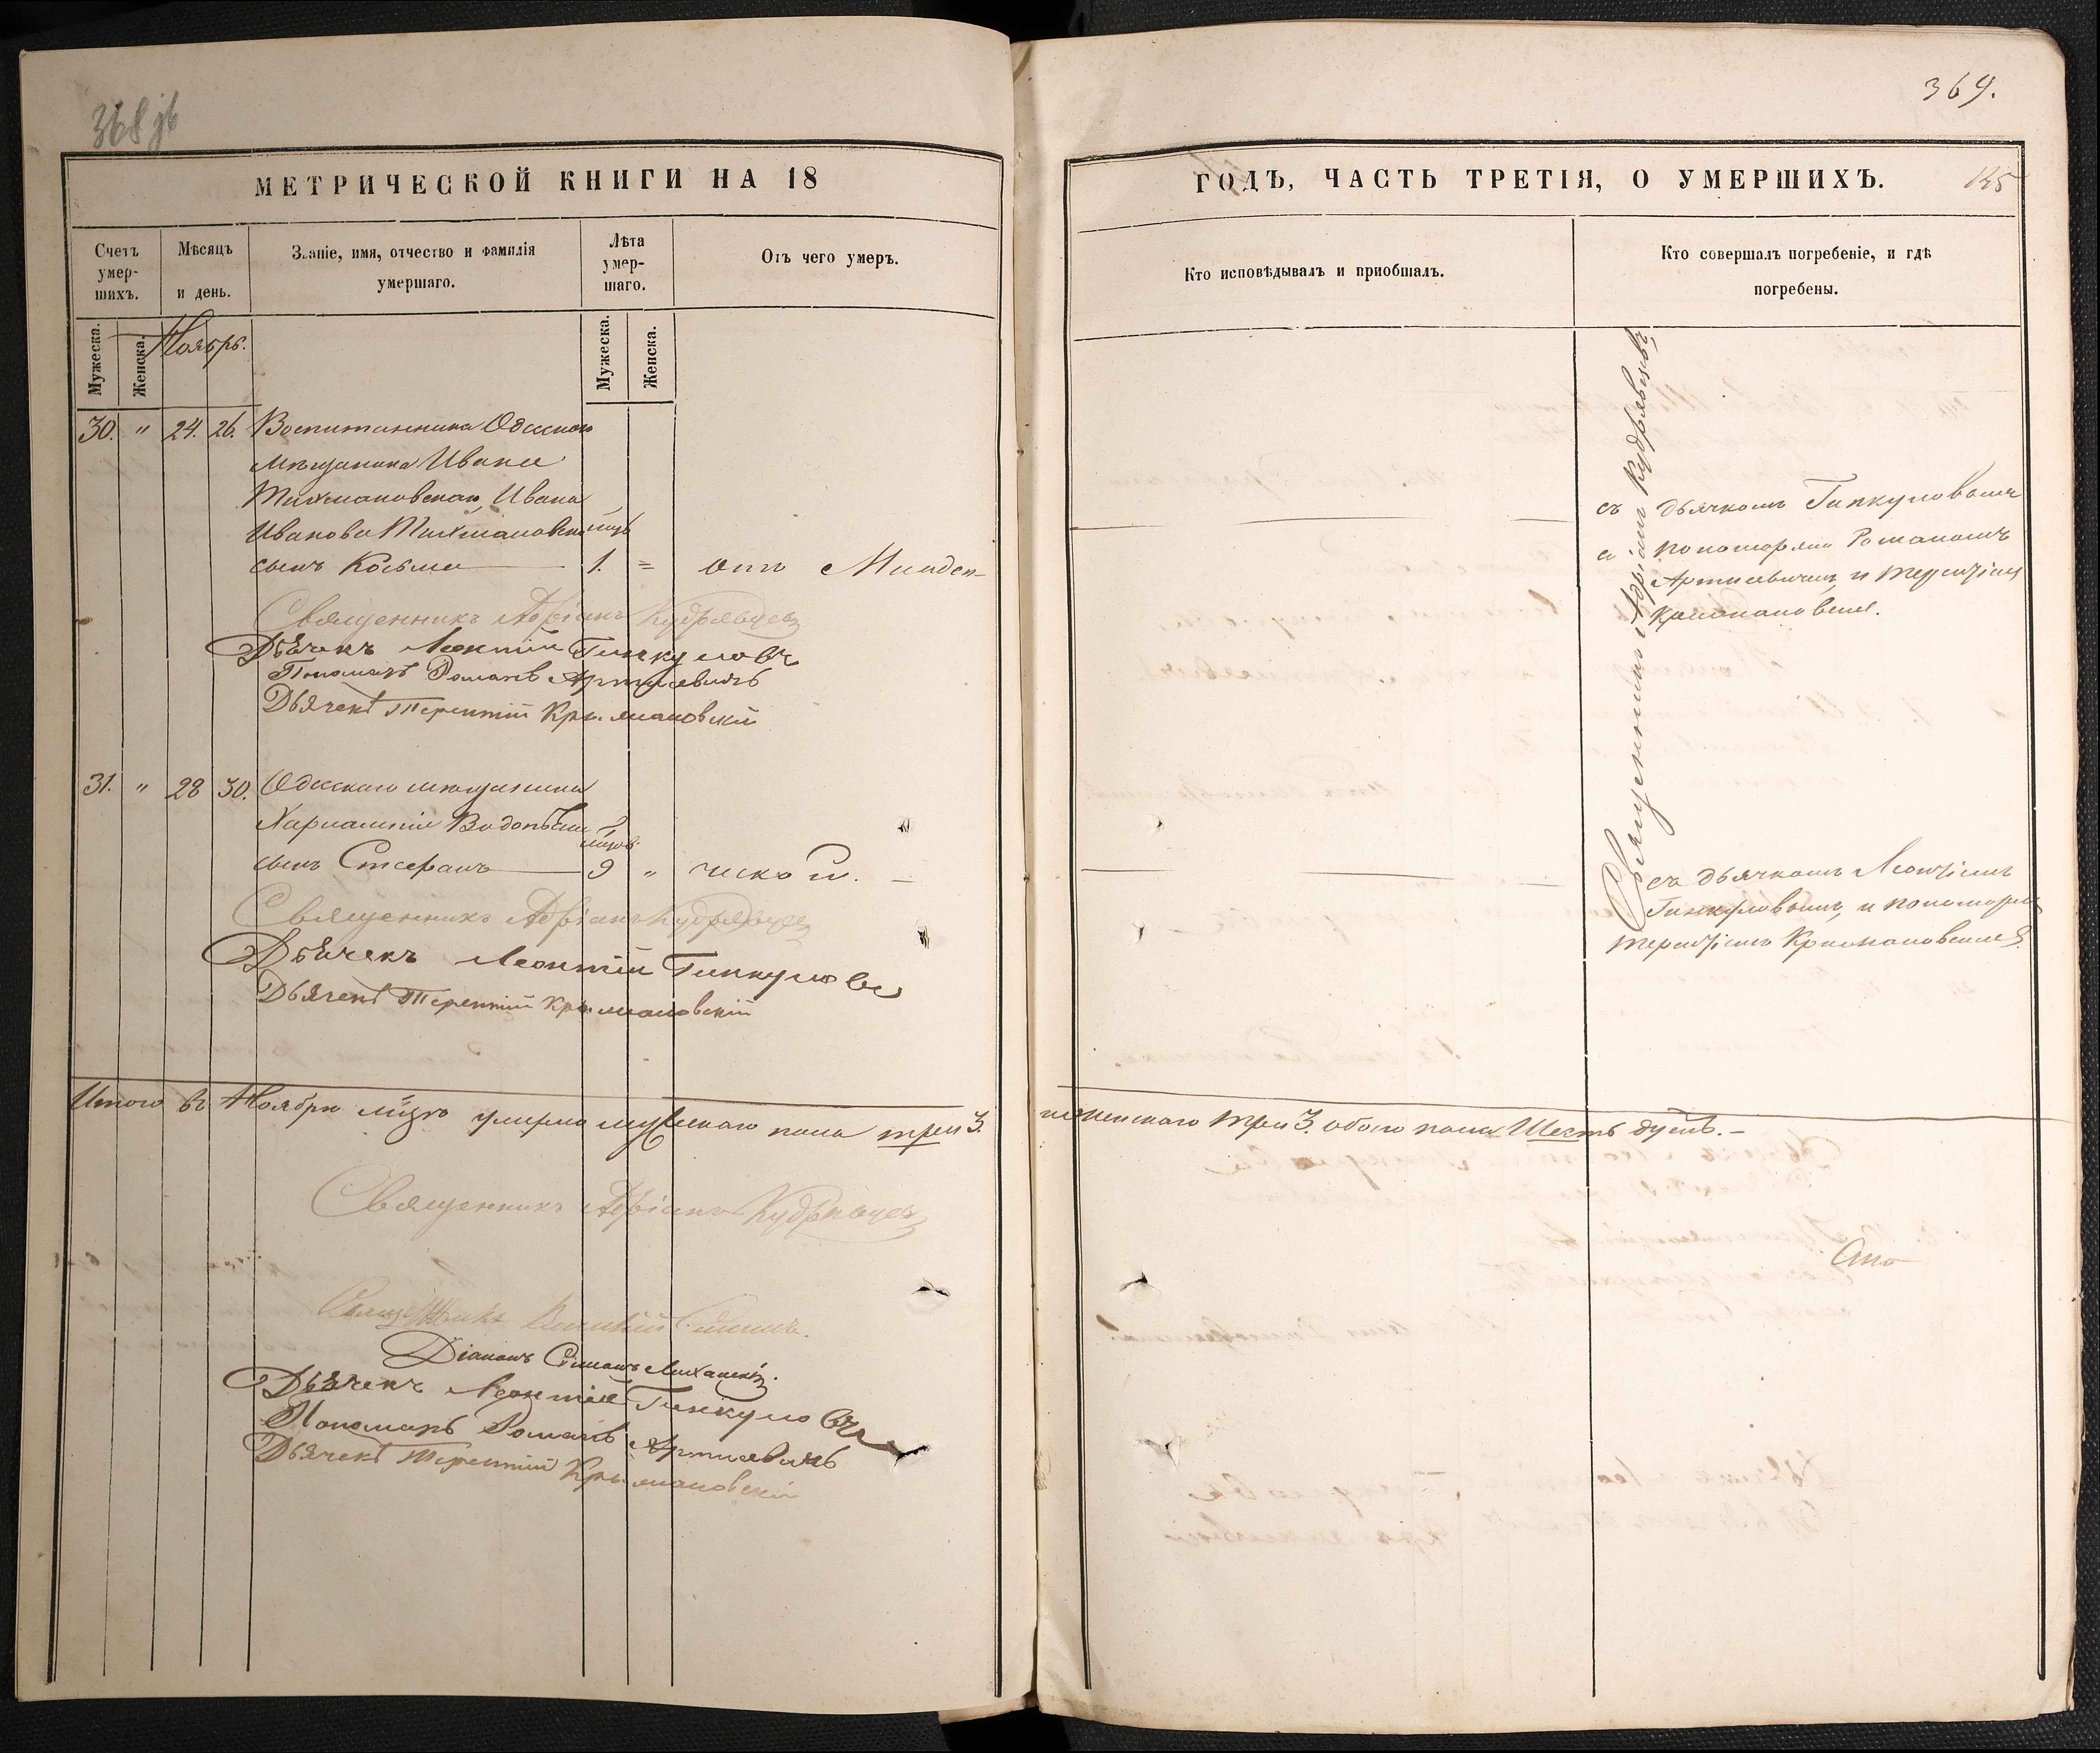 368 зв
МЕТРИЧЕСКОЙ КНИГИ НА 18
Счетъ умер- шихъ.
Мѣсяцъ и день.
Званіе, имя, отчество и фамилія умершаго.
Лѣта умер- шаго.
Отъ чего умеръ.
Мужеска.
Женска.
Ноябрь.
Мужеска.
Женска.
30. " 24. 26. Воспитанника Одесскаго
мѣщанина Ивана
Ивана
Иванова
сынъ Косьма 1. = отъ Младен-
Священникъ Адріанъ Кудрявцевъ
Дьячекъ Леонтій Гинкуловъ
Пономарь Романъ Артисевичъ
Дьячекъ Терентій Крыжановскій
31. " 28 30. Одесскаго мѣщанина
Харлампія
сынъ Стефанъ 9 "
Священникъ Адріанъ Кудрявцевъ
Дьячекъ Леонтій Гинкуловъ
Дьячекъ Терентій Крыжановскій
Итого въ Ноябрѣ мѣсяцѣ умерло мужескаго пола три 3.
Священникъ Адріанъ Кудрявцевъ
Священникъ
Діаконъ Симонъ
Дьячекъ Леонтій Гинкуловъ
Пономарь Романъ Артисевичъ
Дьячекъ Терентій Крыжановскій
369.
ГОДЪ, ЧАСТЬ ТРЕТІЯ, О УМЕРШИХЪ.
Кто исповѣдывалъ и приобщалъ.
Кто совершалъ погребеніе, и гдѣ погребены.
Священникъ Адріанъ Кудрявцевъ
съ дьячкомъ Гинкуловымъ
и пономарями Романомъ
Артисевичемъ и Терентіемъ
Крыжановскимъ.
съ дьячкомъ Леонтіемъ
Гинкуловымъ, и пономаремъ
Терентіемъ Крыжановскимъ.
женскаго три 3. обоего пола Шесть душъ.-